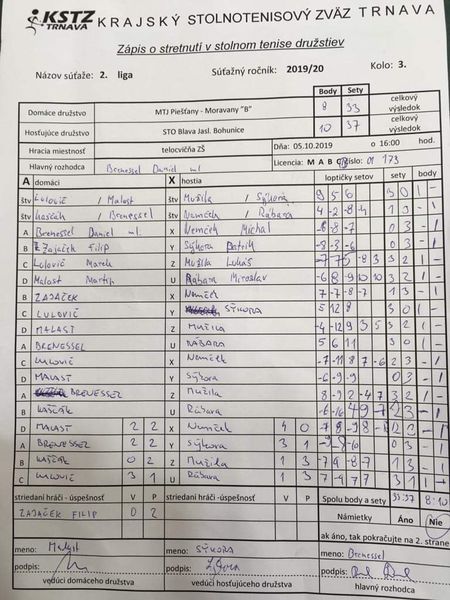 KSTZ TRNAVA KRAJSKÝ STOLNOTENISOVÝ ZVÄZ TRNAVA
Zápis o stretnutí v stolnom tenise družstiev
Názov súťaže: 2. liga Súťažný ročník: 2019/20 Kolo: 3.
Body Sety
Domáce družstvo MTJ Piešťany - Moravany "B" 8 33 celkový výsledok
Hosťujúce družstvo STO Blava Jasl. Bohunice 10 37 celkový výsledok
Hracia miestnosť telocvičňa ZŠ Dňa 05.10.2019 o 16:00 hod.
Hlavný rozhodca Brenessel Daniel ml. Licencia M A B C číslo: 173
A domáci X hostia loptičky sety sety body
štv Lulovič / Malast štv Mužila / Sýkora 9 5 6 3 0 1 -
štv Kaščák / Brenessel štv Nemček / Rábara 4 -2 -8 -4 1 3 - 1
A Brenessel Daniel ml. X Nemček Michal 0 3 - 1
B Zajaček Filip Y Sýkora Patrik -8 -3 -6 0 3 - 1
C Lulovič Marek Z Mužila Lukáš 3 2 1 -
D Malast Martin U Rábara Miroslav -6 8 -9 10 10 3 2 1 -
B ZAJAČEK X Nemček 1 3 - 1
C LULOVIČ Y SÝKORA 5 12 8 3 0 1 -
D MALAST Z MUŽILA -4 -12 9 3 5 3 2 1 -
A BRENESSEL U RÁBARA 5 6 11 3 0 1 -
C LULOVIČ X Nemček 2 3 - 1
D MALAST Y Sýkora -6 -9 -9 0 3 - 1
A BRENESSEL Z Mužila 8 -9 2 -4 7 3 2 1 -
B KAŠČÁK U Rábara 2 3 - 1
D MALAST 2 2 X Nemček 4 0 - 1
A BRENESSEL 2 2 Y Sýkora 3 1 0 3 - 1
B KAŠČÁK 0 2 Z Mužila 1 3 -7 9 -8 -7 1 3 - 1
C LULOVIČ 3 1 U Rábara 1 3 7 -9 7 7 3 1 1 -
striedaní hráči - úspešnosť V P striedaní hráči - úspešnosť V P Spolu body a sety 33:37 8-10
ZAJAČEK FILIP 0 2 Námietky Áno Nie
ak áno, tak pokračujte na 2. strane
meno: Malast meno: SÝKORA meno: Brenessel
podpis: podpis: podpis:
vedúci domáceho družstva vedúci hosťujúceho družstva hlavný rozhodca